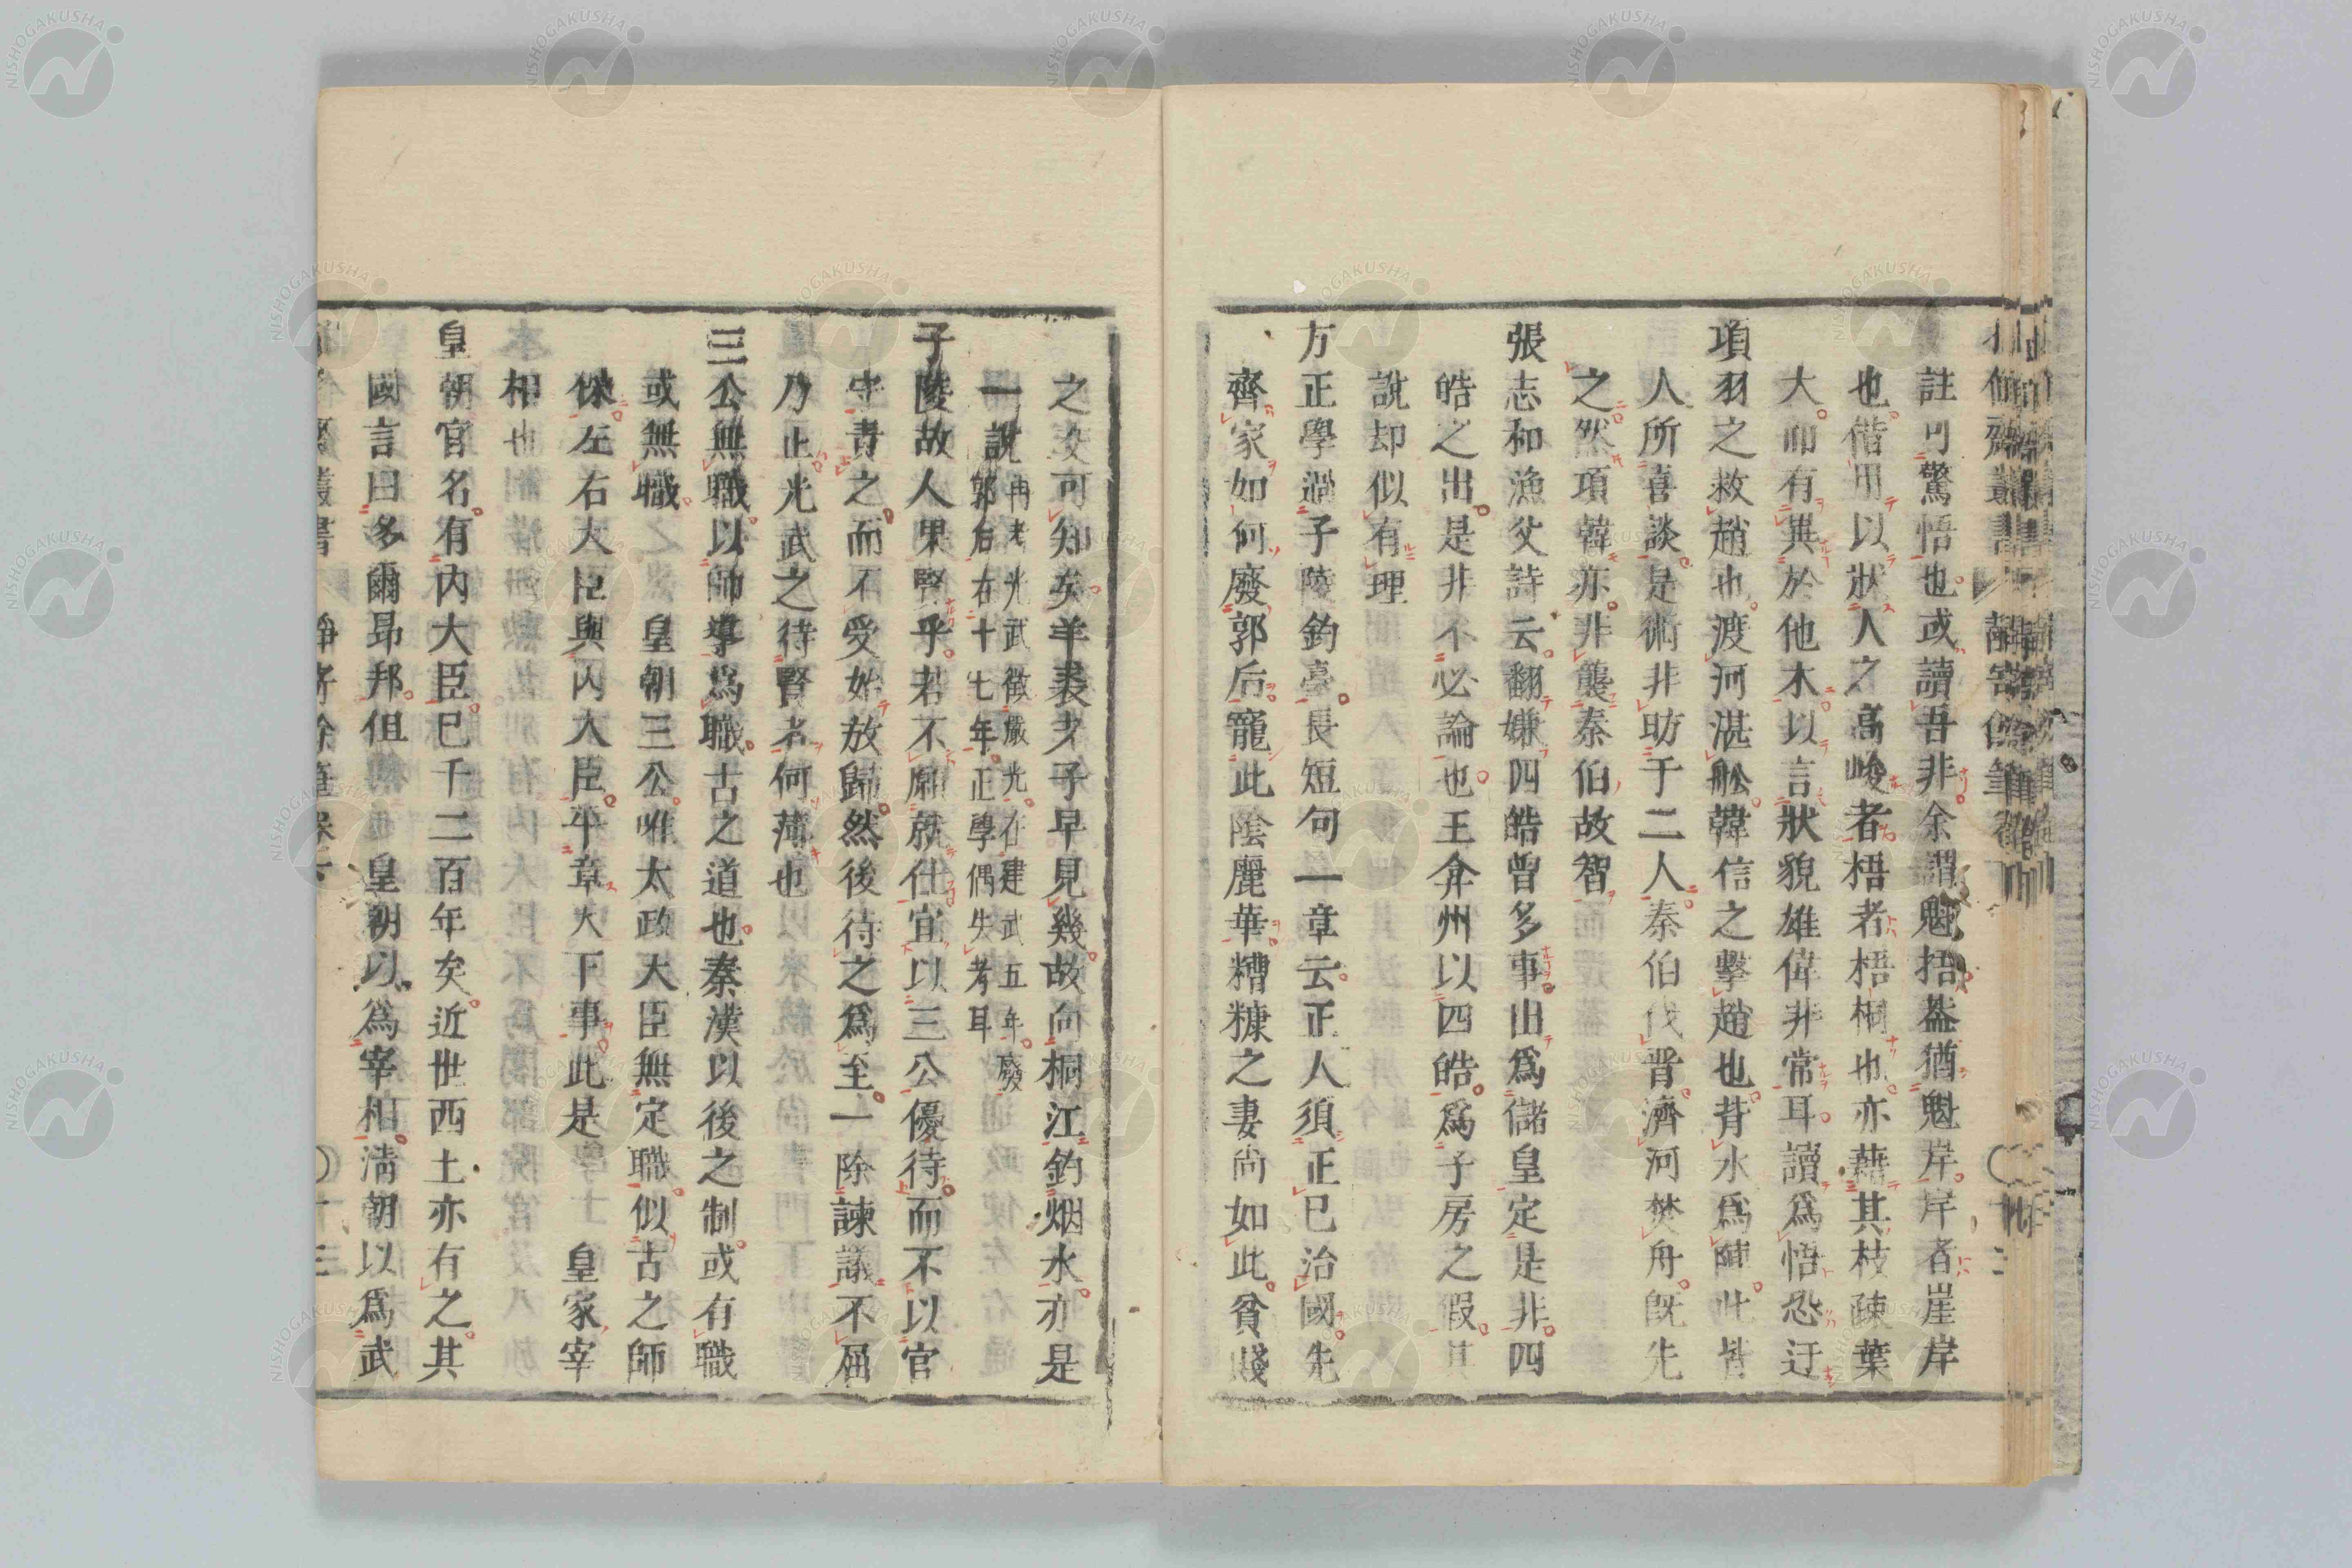 註可驚悟也或讀吾非余謂魁捂蓋猶魁岸岸者崖岸
也借用以狀人之高峻者梧者梧桐也亦藉其枝疎葉
大而有異於他木以言狀貌雄偉非常耳讀爲悟恐迂
項羽之救趙也渡河湛舩韓信之擊趙也背水爲陣此皆
人所喜談是術非昉于二人秦伯伐晋濟河焚舟既先
之然項韓亦非襲秦伯故智
張志和漁父詩云翻嫌四皓曾多事出爲儲皇定是非四
皓之出是非不必論也王弇州以四皓爲子房之假其
說却似有理
方正學過子陵釣臺長短句一章云正人須正已治國先
齊家如何廢郭后寵此陰麗華糟糠之妻尚如此貧賤
之交可知矣羊裘夛子早見幾故向桐江釣烟水亦是
一說
冉考光武徵嚴光在建武五年廢
郭后在十七年正學偶失考耳
子陵故人果賢乎若不願就仕宜以三公優待而不以官
守責之而不受始放歸然後待之爲至一除諫議不屈
乃止光武之待賢者何薄也
三公無職以師導爲職古之道也秦漢以後之制或有職
或無職 皇朝三公唯太政大臣無定職似古之師
保左右大臣與内大臣平章大下事此是 皇家宰
相也
皇朝官名有内大臣已千二百年矣近世西土亦有之其
國言曰多爾昂邦但 皇朝以爲宰相淸朝以爲武